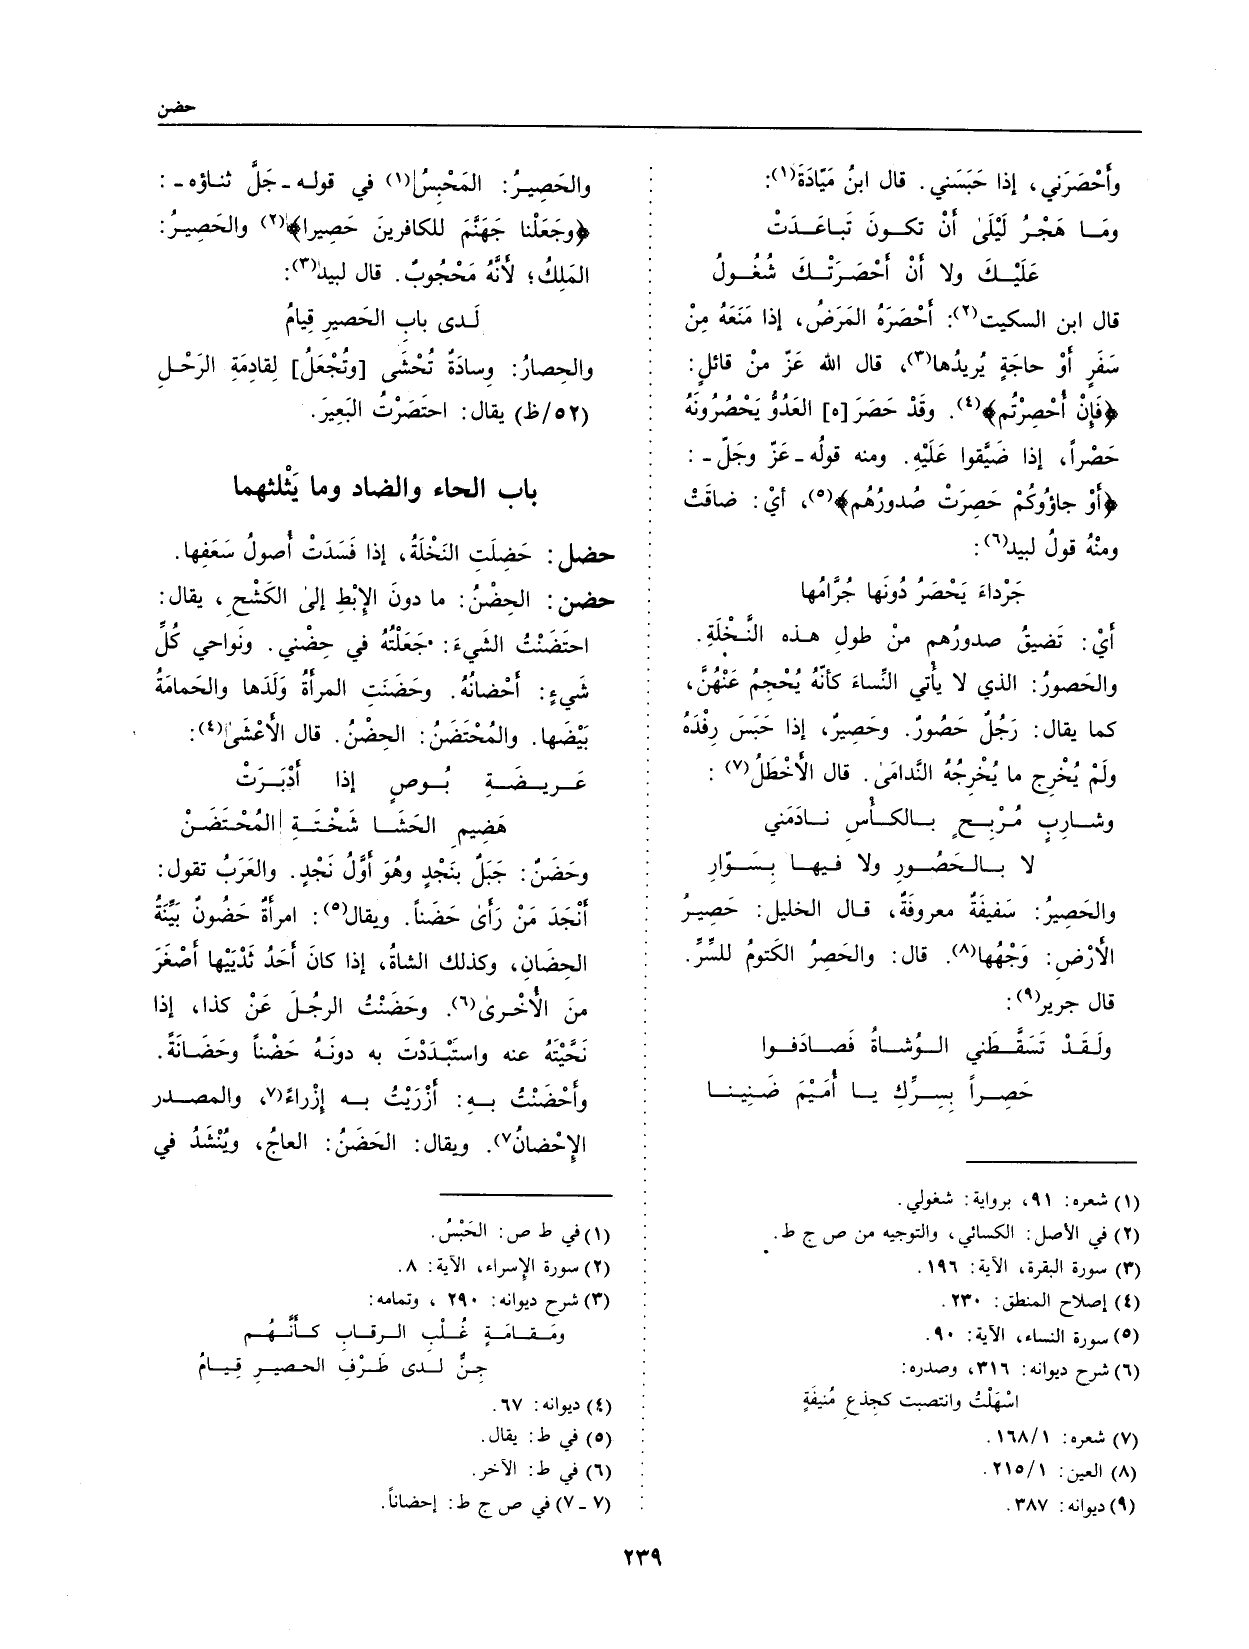 حضن
وأَحْصَرَني، إذا حَبَسَني. قال ابنُ مَيّادَةَ(١):
ومَــا هَجْـرُ لَيْلَىٰ أَنْ تكــونَ تَباعَــدَتْ
عَلَيْــكَ ولا أَنْ أَحْصَـرَتْــكَ شُغُــولُ
قال ابن السكيت(٢): أَحْصَرَهُ المَرَضُ، إذا مَنَعَهُ مِنْ
سَفَرٍ أَوْ حاجَةٍ يُريدُها(٣)، قال الله عَزّ منْ قائلٍ:
﴿فَإِنْ أُحْصِرْتُم﴾(٤). وقَدْ حَصَرَ [ه] العَدُوُّ يَحْصُرُونَهُ
حَصْراً، إذا ضَيَّقوا عَلَيْهِ. ومنه قولُه ـ عَزّ وجَلّ ـ :
﴿أَوْ جاؤُوكُمْ حَصِرَتْ صُدورُهُم﴾(٥)، أيْ: ضاقَتْ
ومنْهُ قولُ لبيد(٦):
جَرْداءَ يَحْصَرُ دُونَها جُرَّامُها
أَيْ: تَضيقُ صدورُهم منْ طولِ هـذه النَّـخْلَةِ.
والحَصورُ: الذي لا يأتي النِّساءَ كأنّهُ يُحْجِمُ عَنْهُنَّ،
كما يقال: رَجُلٌ حَصُورٌ. وحَصِيرٌ، إذا حَبَسَ رِفْدَهُ
ولَمْ يُخْرِج ما يُخْرِجُهُ النَّدامَى. قال الأَخْطَلُ(٧) :
وشــارِبٍ مُـرْبِـحٍ بـالكَـأْسِ نـادَمَني
لا بـالـحَصُــورِ ولا فيهـا بِسَــوّارِ
والحَصِيرُ: سَفيفَةٌ معروفَةٌ، قـال الخليل: حَصِيـرُ
الأَرْضِ: وَجْهُها(٨). قال: والحَصِرُ الكَتومُ للسِّرِّ.
قال جرير(٩):
ولَقَـدْ تَسَقَّـطَني الـوُشـاةُ فَصـادَفـوا
حَصِــراً بِسِــرِّكِ يــا أُمَيْمَ ضَنِينــا
(١) شعره: ٩١، برواية: شغولي.
(٢) في الأصل: الكسائي، والتوجيه من ص ج ط.
(٣) سورة البقرة، الآية: ١٩٦.
(٤) إصلاح المنطق: ٢٣٠.
(٥) سورة النساء، الآية: ٩٠.
(٦) شرح ديوانه: ٣١٦، وصدره:
اسْهَلْتُ وانتصبت كجذعِ مُنيفَةٍ
(٧) شعره: ١٦٨/١.
(٨) العين: ٢١٥/١.
(٩) ديوانه: ٣٨٧.
والحَصِيـرُ: المَحْبِسُ(١) في قولـه ـ جَلَّ ثنـاؤه ـ :
﴿وجَعَلْنا جَهَنَّمَ للكافرينَ حَصِيرا﴾(٢) والحَصِيـرُ:
المَلِكُ؛ لأَنَّهُ مَحْجُوبٌ. قال لبيد(٣):
لَـدى بابِ الحَصيرِ قِيامُ
والحِصارُ: وِسادَةٌ تُحْشَى [وتُجْعَلُ] لِقادِمَةِ الرَحْـلِ
(٥٢/ظ) يقال: احتَصَرْتُ البَعِيرَ.
باب الحاء والضاد وما يَثْلثهما
حضل: حَضِلَتِ النَخْلَةُ، إذا فَسَدَتْ أُصولُ سَعَفِها.
حضن: الحِضْنُ: ما دونَ الإِبْطِ إلى الكَشْحِ، يقال:
احتَضَنْتُ الشَيءَ: جَعَلْتُهُ في حِضْني. ونَواحي كُلِّ
شَيءٍ: أَحْضانُهُ. وحَضَنَتِ المرأَةُ وَلَدَها والحَمامَةُ
بَيْضَها. والمُحْتَضَنُ: الحِضْنُ. قال الأَعْشَىٰ(٤):
عَــريــضَــةِ بُــوصٍ إذا أَدْبَــرَتْ
هَضِيمِ الحَشَــا شَخْتَــةِ المُحْتَضَــنْ
وحَضَنٌ: جَبَلٌ بنَجْدٍ وهُوَ أَوَّلُ نَجْدٍ. والعَرَبُ تقول:
أَنْجَدَ مَنْ رَأَىٰ حَضَناً. ويقال(٥): امرأةٌ حَضُونٌ بَيِّنَةُ
الحِضانِ، وكذلك الشاةُ، إذا كانَ أَحَدُ ثَدْيَيْها أَصْغَرَ
منَ الأُخْـرىٰ(٦). وحَضَنْتُ الرجُلَ عَنْ كذا، إذا
نَحَّيْتَهُ عنه واستَبْدَدْتَ به دونَـهُ حَضْناً وحَضـانَةً.
وأَحْضَنْتُ بــهِ: أَزْرَيْتُ بــه إِزْراءً(٧، والمصـدر
الإِحْضانُ٧). ويقال: الحَضَنُ: العاجُ، ويُنْشَدُ في
(١) في ط ص: الحَبْسُ.
(٢) سورة الإسراء، الآية: ٨.
(٣) شرح ديوانه: ٢٩٠ ، وتمامه:
ومَـقـامَـةٍ غُـلْبِ الـرقـابِ كـأَنَّـهُـم
جِـنٌّ لـدى طَـرَفِ الحصيـرِ قِيـامُ
(٤) ديوانه: ٦٧.
(٥) في ط: يقال.
(٦) في ط: الآخر.
(٧ ـ ٧) في ص ج ط: إحضاناً.
٢٣٩